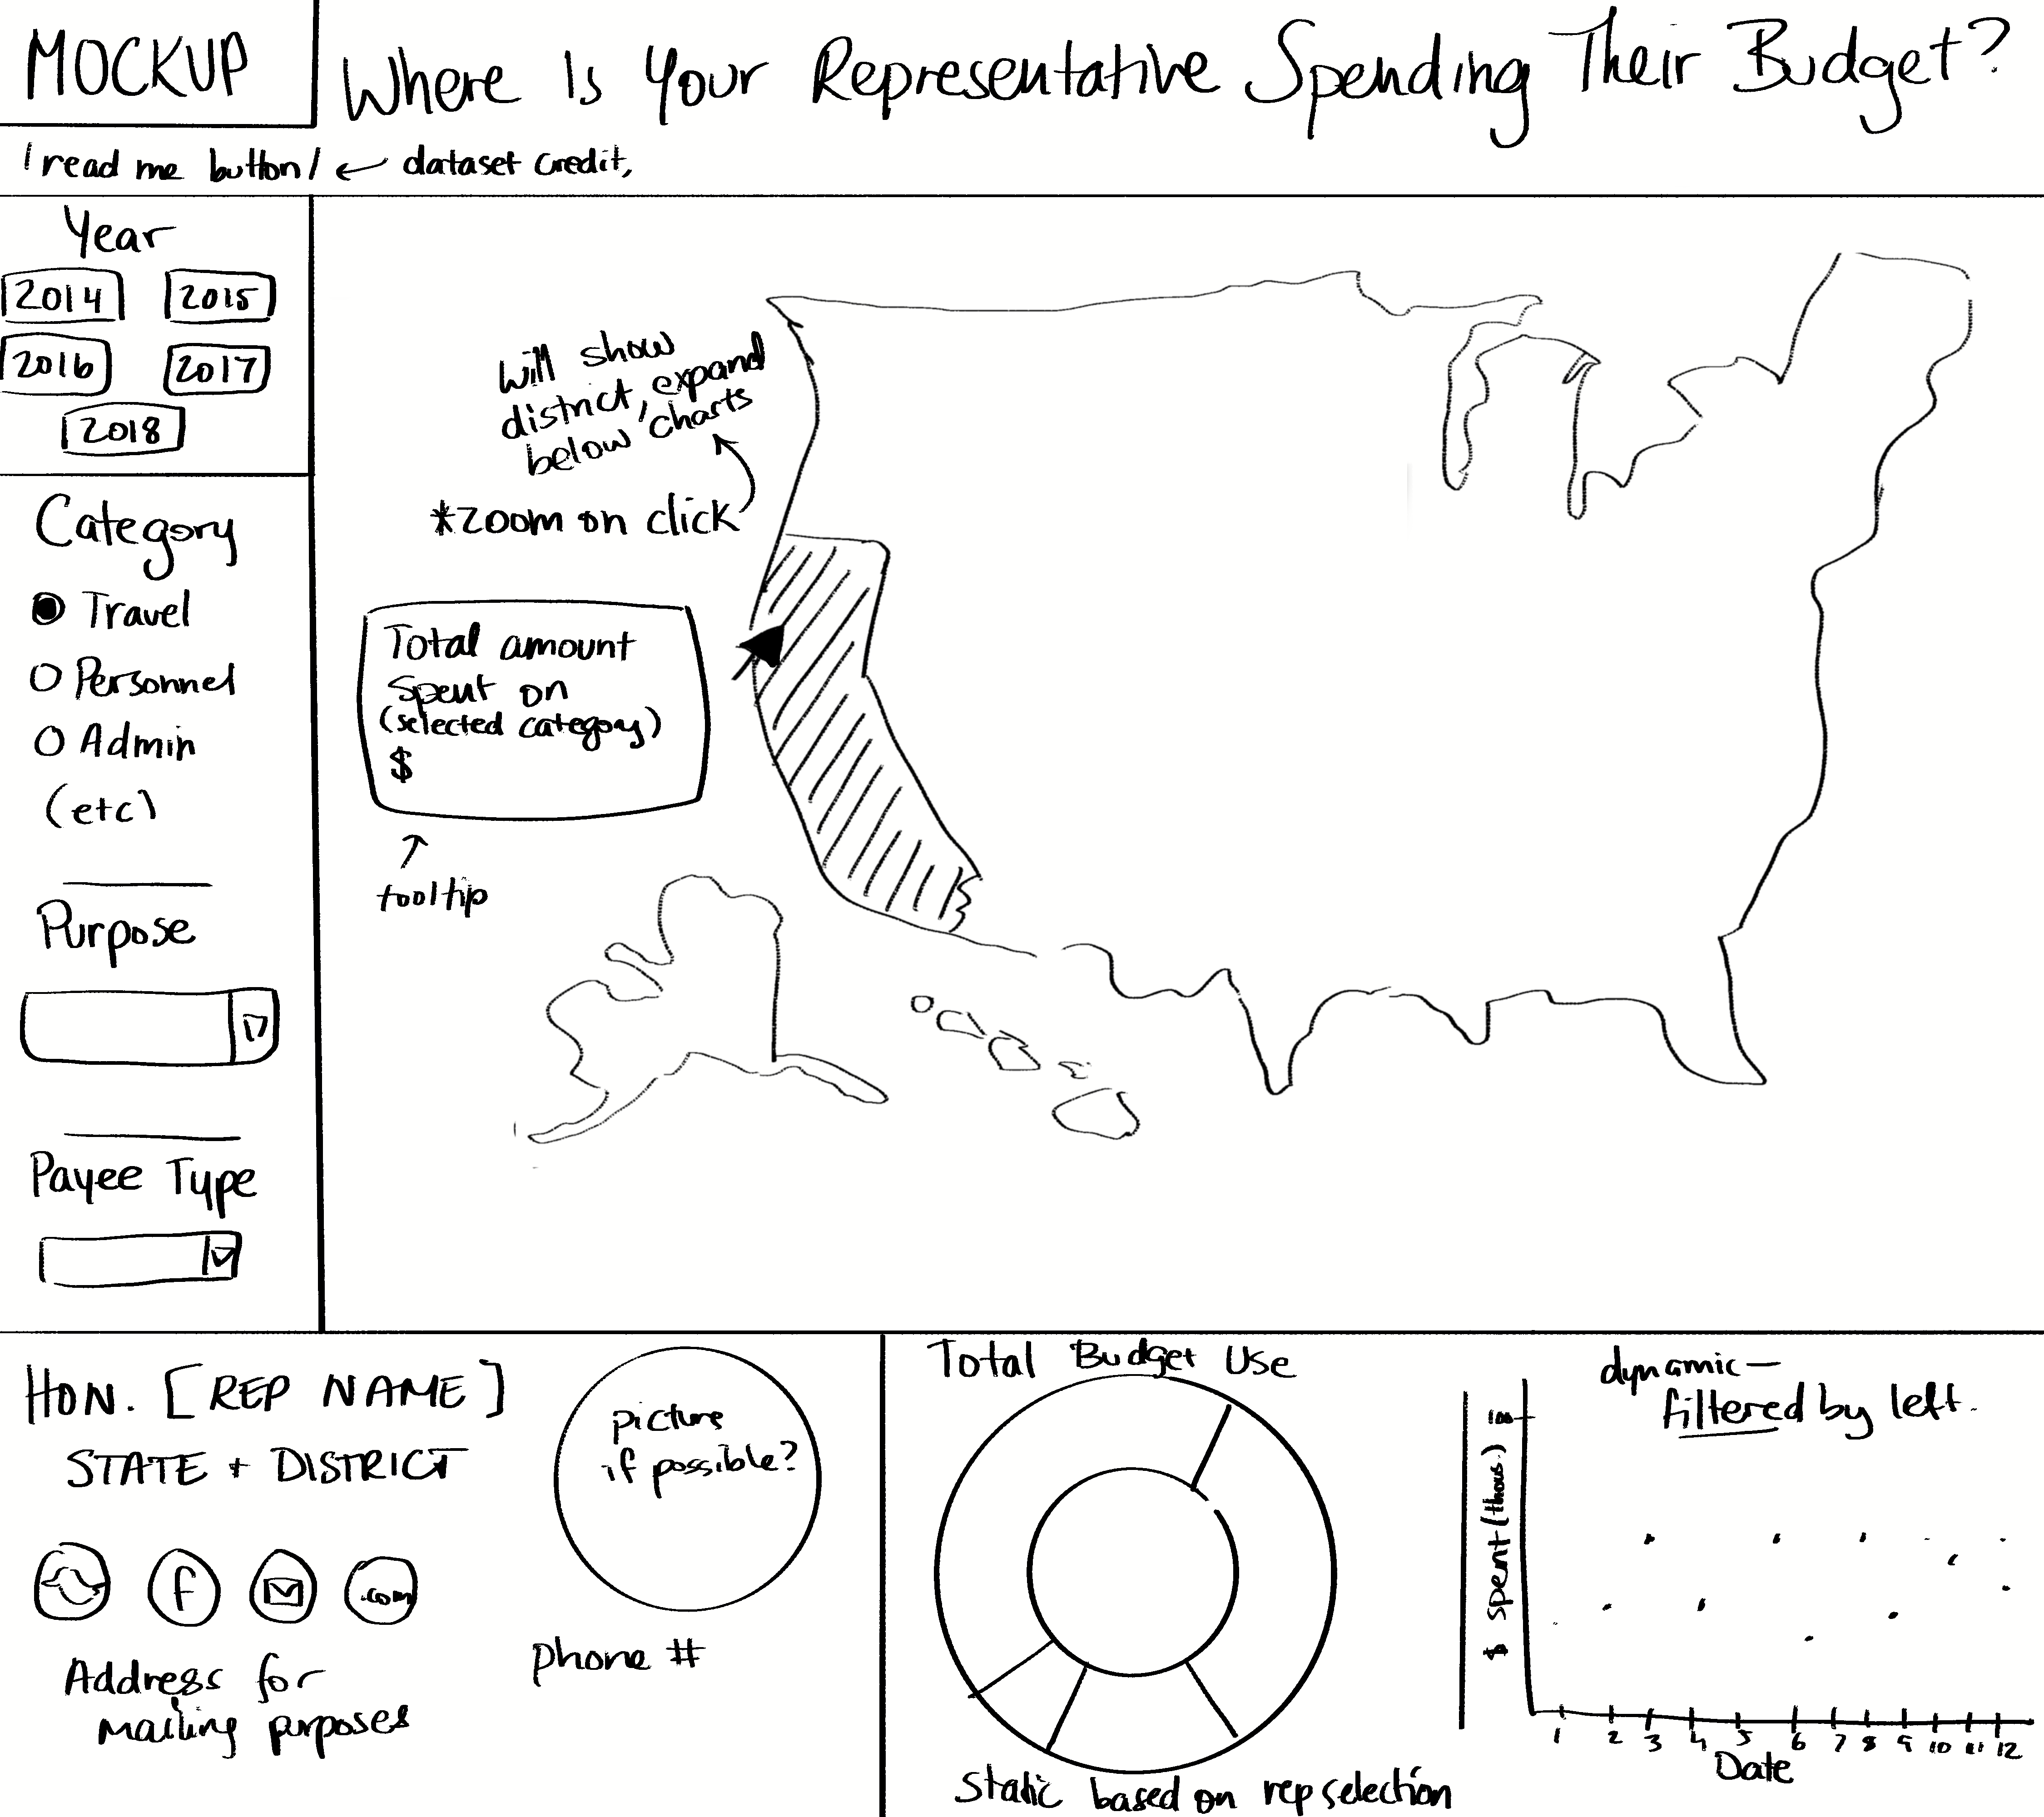 MOCKUP
Where Is Your Representative Spending Their Budget?
/read me button/ ← dataset credit,
Year
2014 2015
2016 2017
2018
Category
Travel
Personnel
Admin
(etc)
Purpose
Payee Type
will show
district, expand
below charts
*zoom on click
Total amount
Spent on
(selected category)
$
tooltip
HON. [REP NAME]
STATE + DISTRICT
f
.com
Address for
mailing purposes
picture
if possible?
phone #
Total Budget Use
Static based on rep selection
dynamic—
filtered by left.
100
$ spent (thous.)
1 2 3 4 5 6 7 8 9 10 11 12
Date